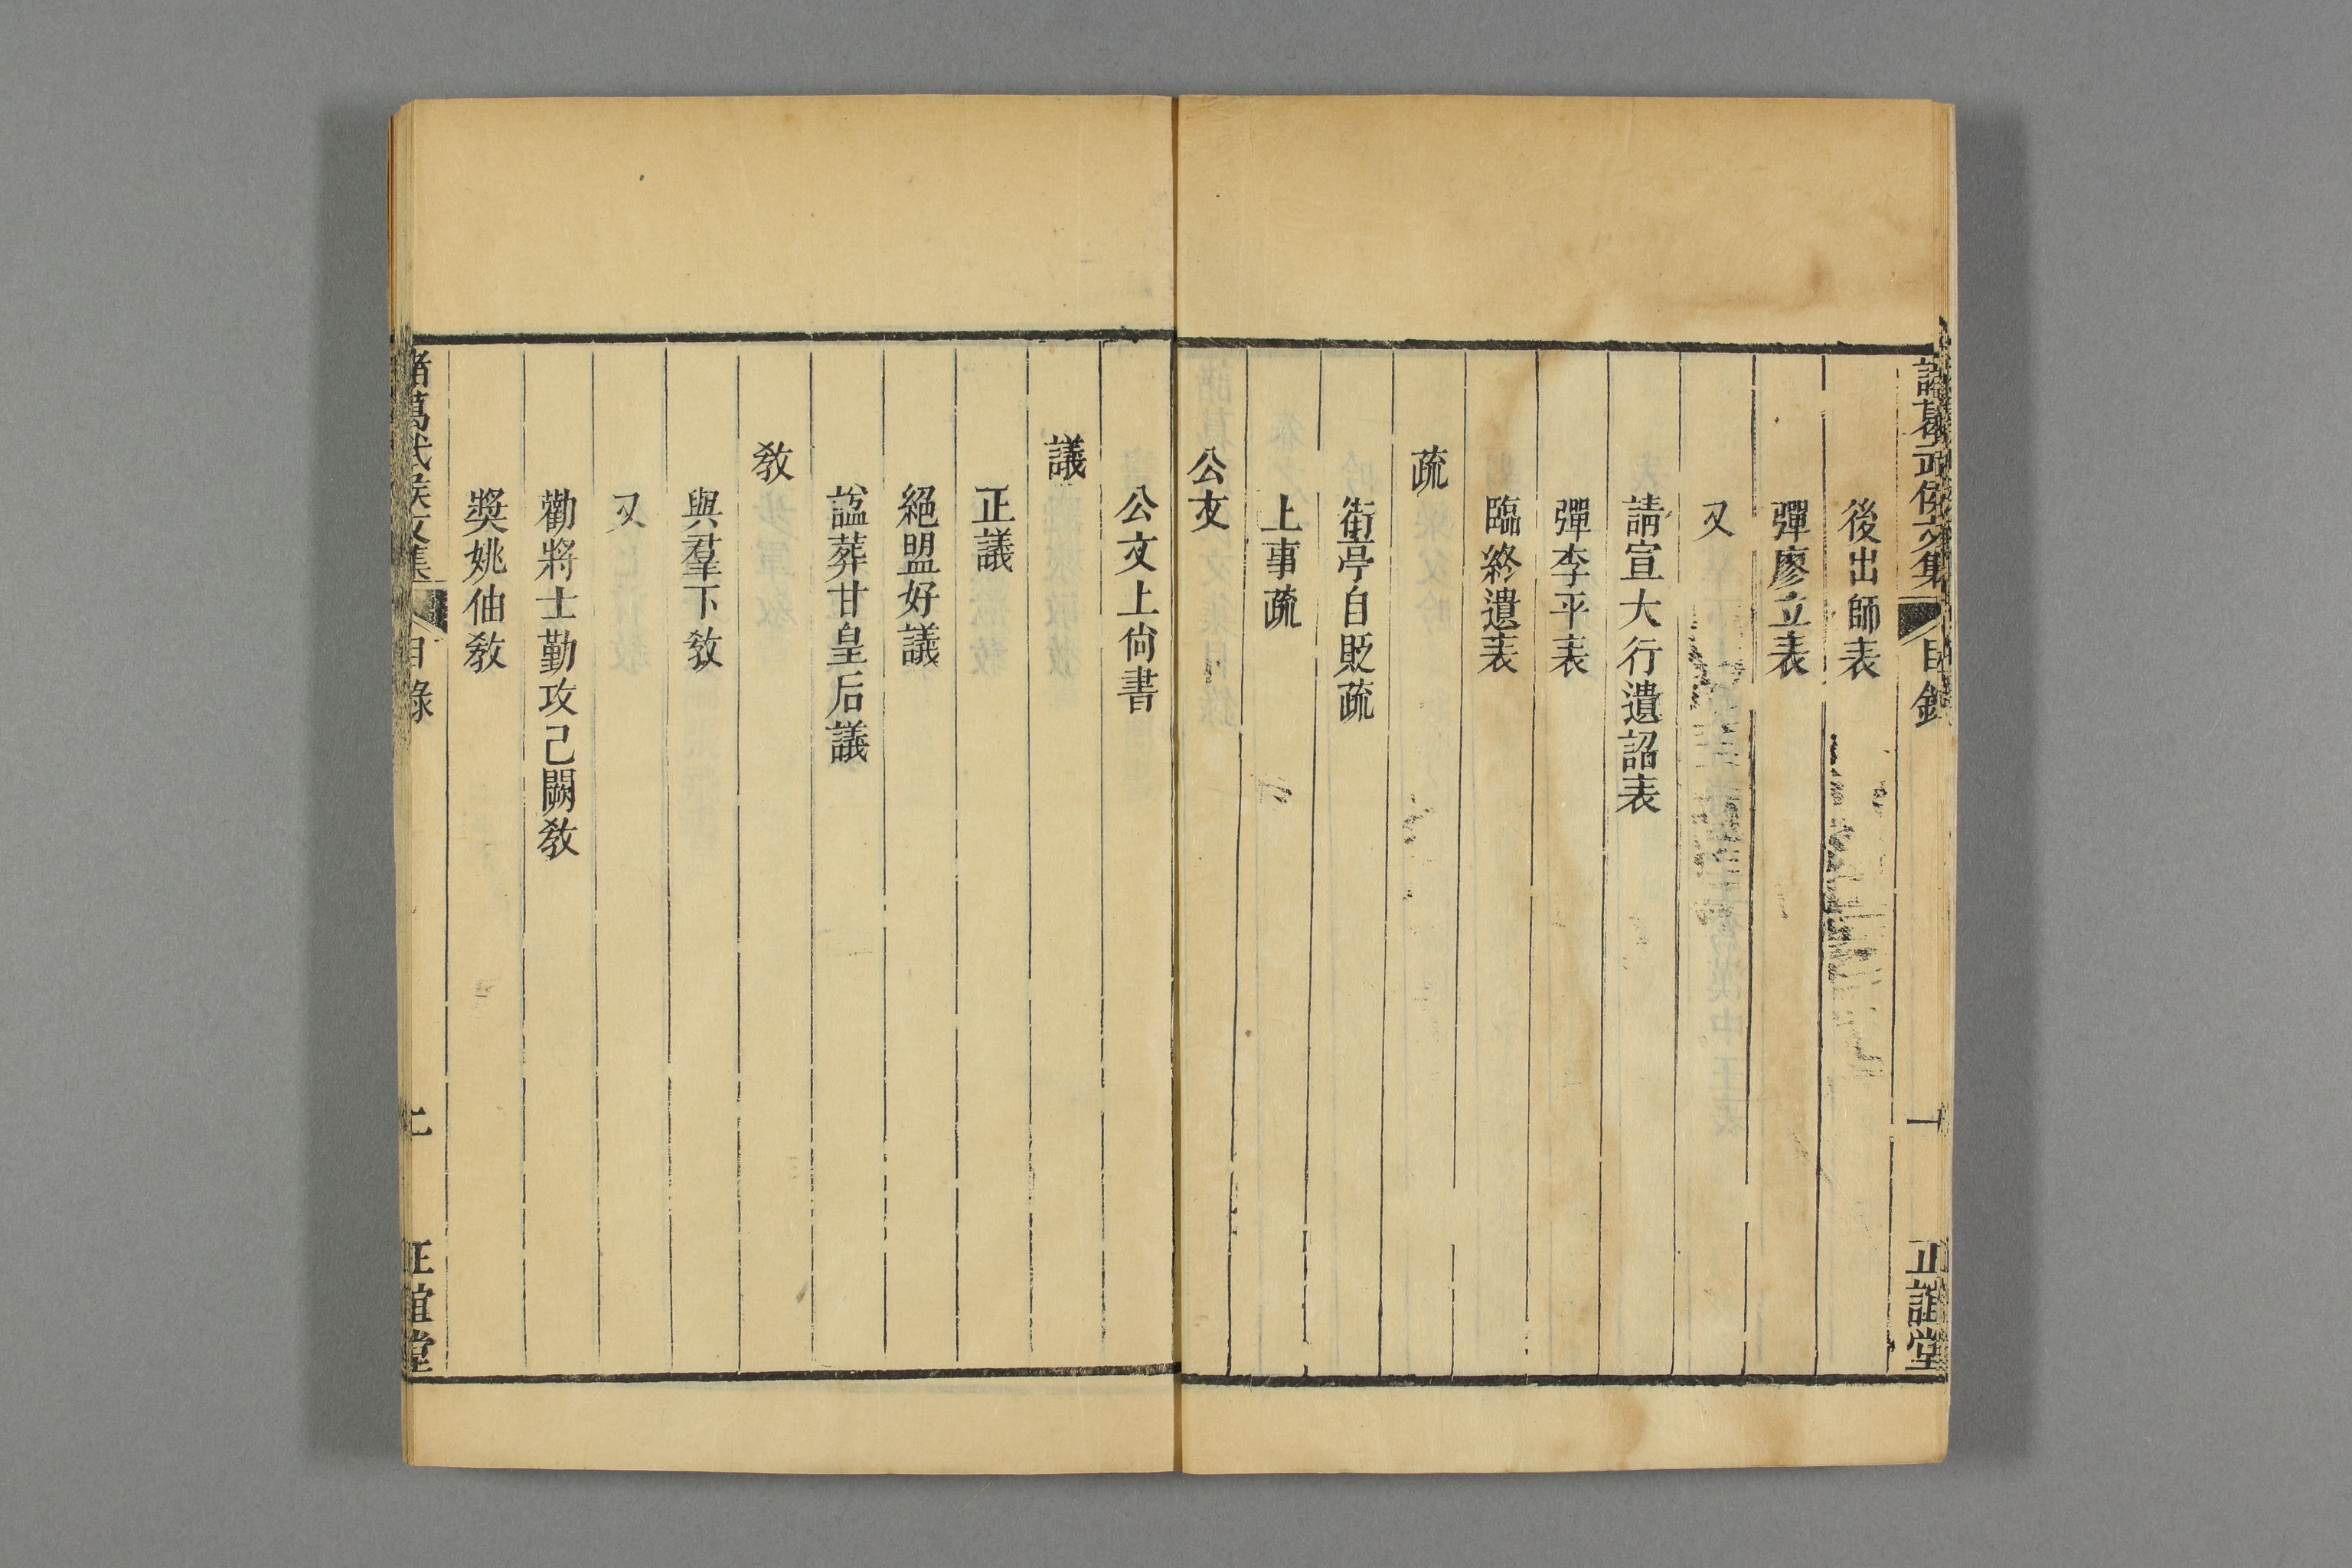 諸葛武侯文集 目錄 一 正誼堂
後出師表
彈廖立表
又
請宣大行遺詔表
彈李平表
臨終遺表
疏
街亭自貶疏
上事疏
公文
公文上尚書
議
正議
絕盟好議
諡葬甘皇后議
教
與羣下教
又
勸將士勤攻己闕教
獎姚伷教
諸葛武侯文集 目錄 二 正誼堂